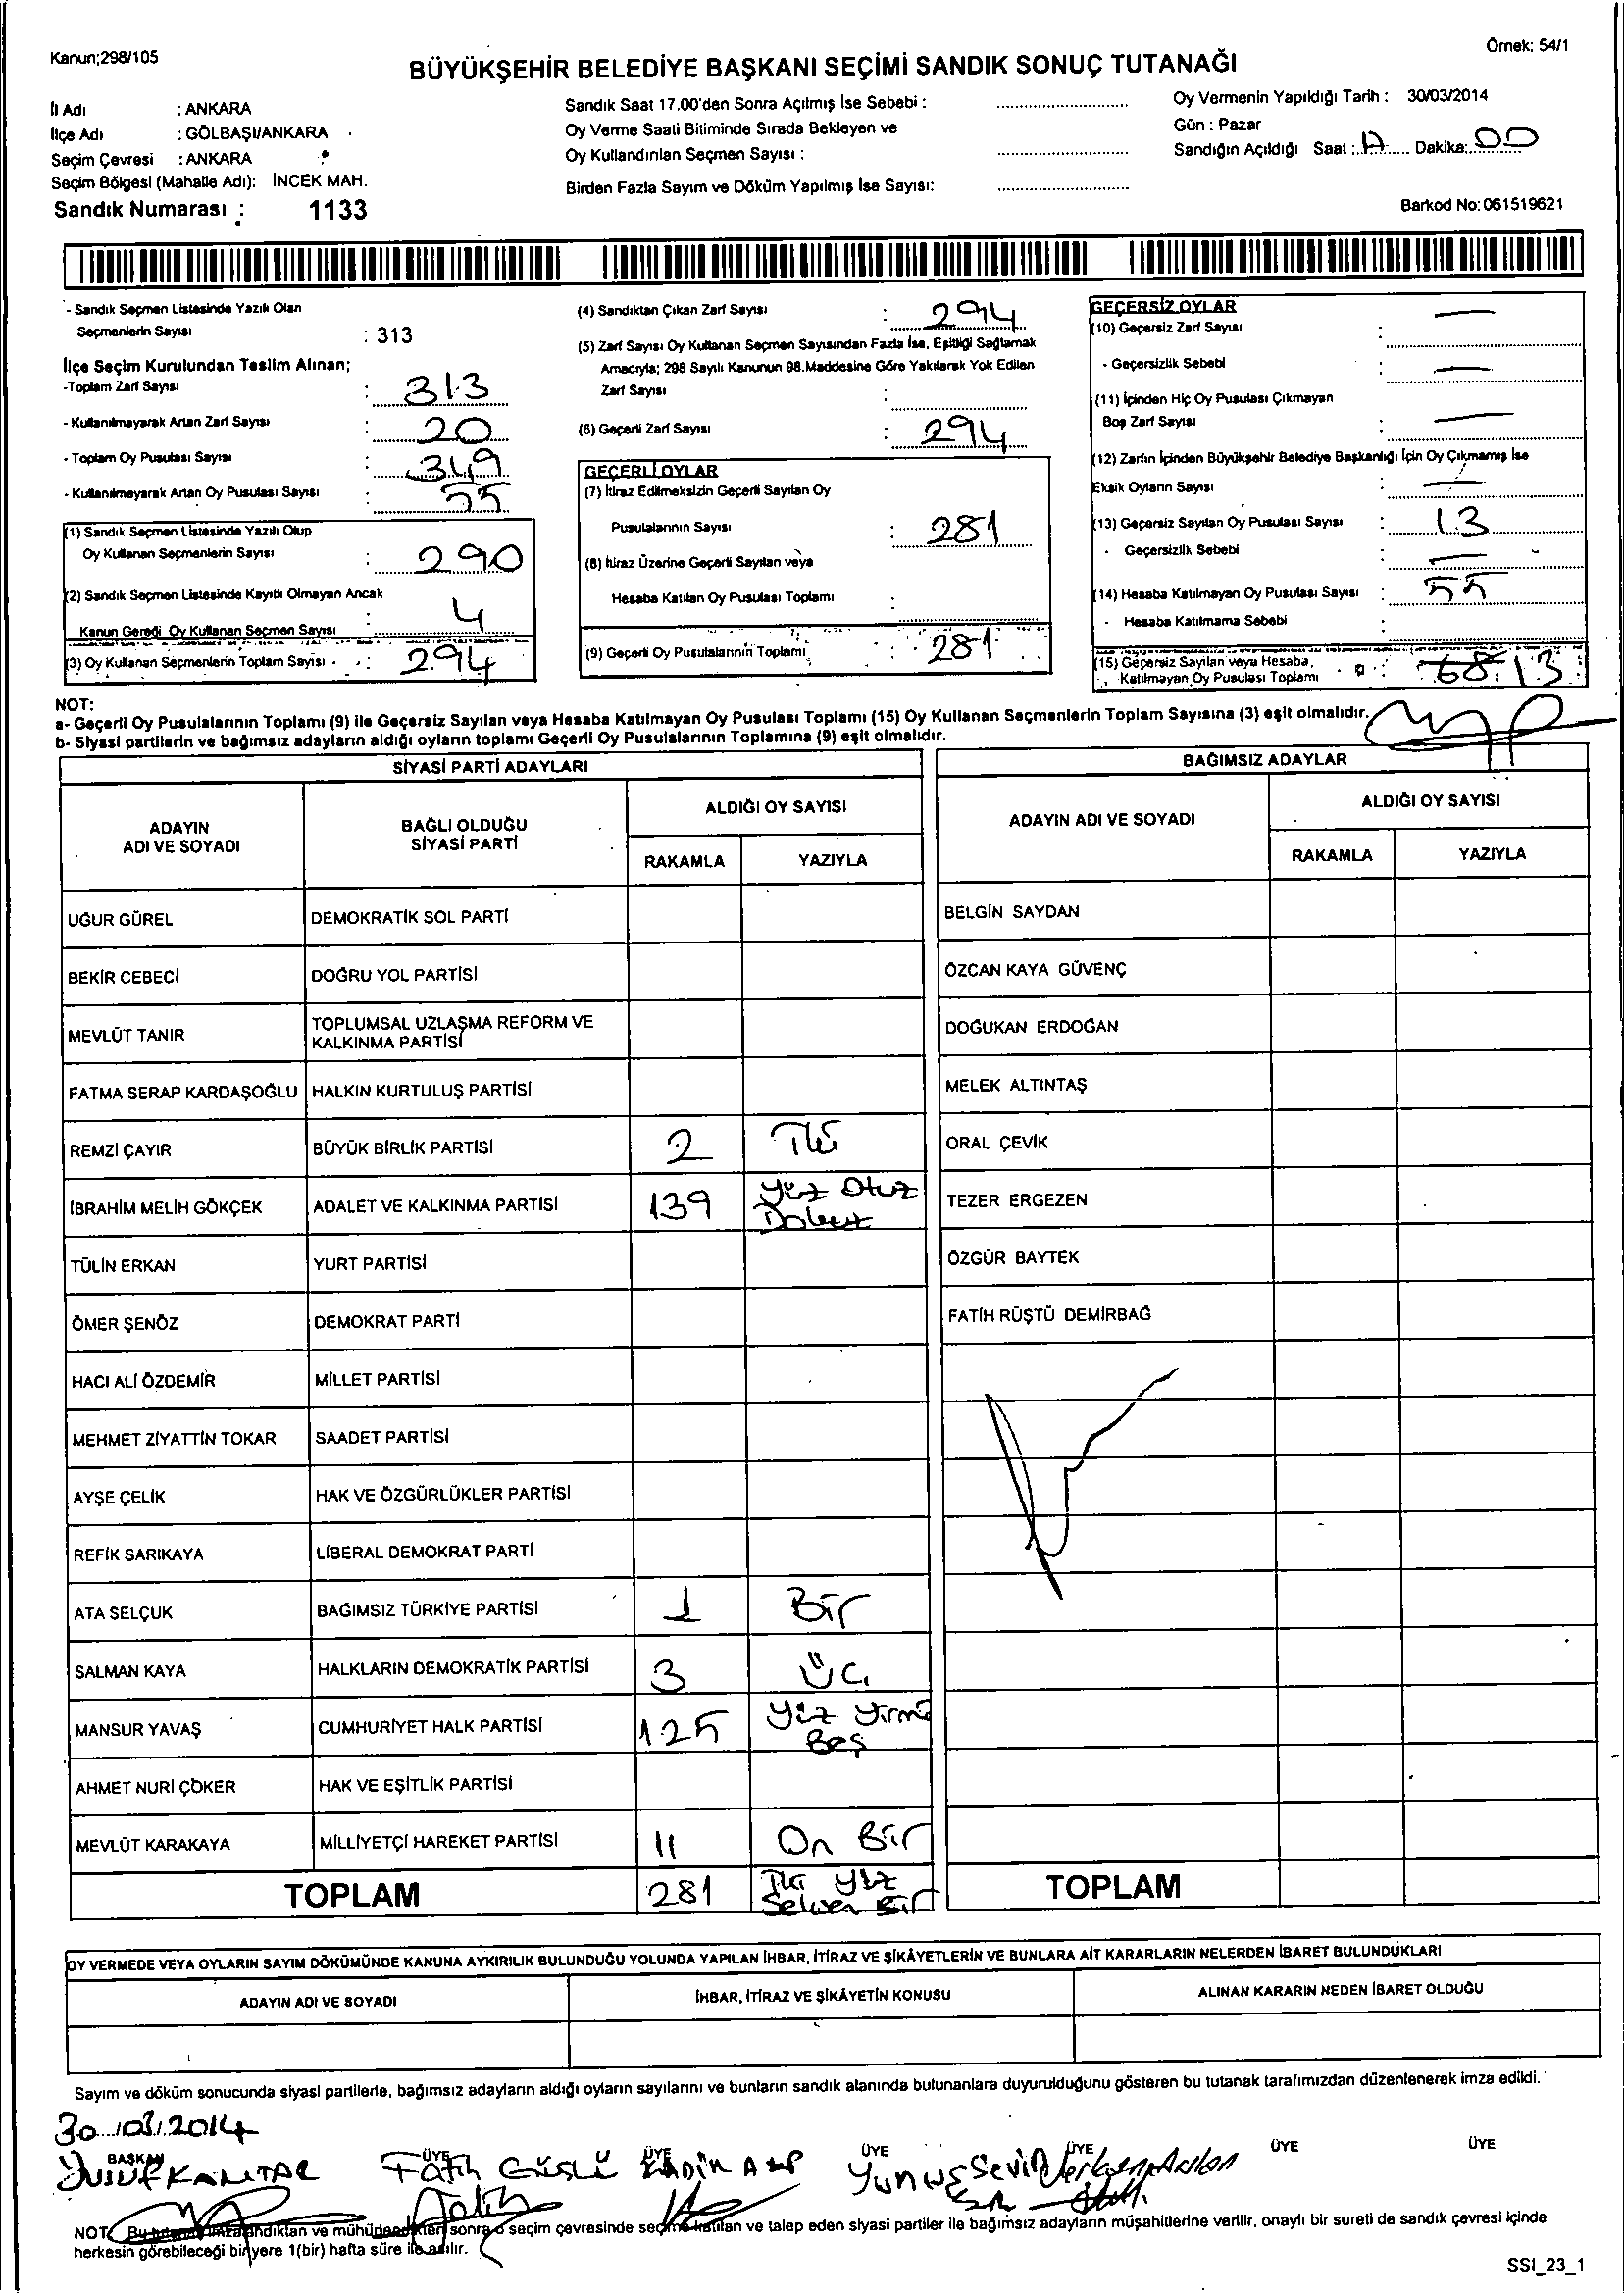 Kanun;298/105
Örnek: 54/1
BÜYÜKŞEHİR BELEDİYE BAŞKANI SEÇİMİ SANDIK SONUÇ TUTANAĞI
İl Adı : ANKARA
İlçe Adı : GÖLBAŞI/ANKARA
Seçim Çevresi : ANKARA
Seçim Bölgesi (Mahalle Adı): İNCEK MAH.
Sandık Numarası : 1133
Sandık Saat 17.00'den Sonra Açılmış İse Sebebi :
Oy Verme Saati Bitiminde Sırada Bekleyen ve
Oy Kullandırılan Seçmen Sayısı :
Birden Fazla Sayım ve Döküm Yapılmış İse Sayısı:
Oy Vermenin Yapıldığı Tarih : 30/03/2014
Gün : Pazar
Sandığın Açıldığı Saat : Dakika: 00
Barkod No: 061519621
- Sandık Seçmen Listesinde Yazılı Olan
Seçmenlerin Sayısı : 313
İlçe Seçim Kurulundan Teslim Alınan;
-Toplam Zarf Sayısı : 313
- Kullanılmayarak Artan Zarf Sayısı : 20
- Toplam Oy Pusulası Sayısı : 349
- Kullanılmayarak Artan Oy Pusulası Sayısı : 55
(1) Sandık Seçmen Listesinde Yazılı Olup
Oy Kullanan Seçmenlerin Sayısı : 290
(2) Sandık Seçmen Listesinde Kayıtlı Olmayan Ancak
Kanun Gereği Oy Kullanan Seçmen Sayısı : 4
(3) Oy Kullanan Seçmenlerin Toplam Sayısı : 294
(4) Sandıktan Çıkan Zarf Sayısı : 294
(5) Zarf Sayısı Oy Kullanan Seçmen Sayısından Fazla İse, Eşitliği Sağlamak
Amacıyla; 298 Sayılı Kanunun 98.Maddesine Göre Yakılarak Yok Edilen
Zarf Sayısı :
(6) Geçerli Zarf Sayısı : 294
GEÇERLİ OYLAR
(7) İtiraz Edilmeksizin Geçerli Sayılan Oy
Pusulalarının Sayısı : 281
(8) İtiraz Üzerine Geçerli Sayılan veya
Hesaba Katılan Oy Pusulası Toplamı :
(9) Geçerli Oy Pusulalarının Toplamı : 281
GEÇERSİZ OYLAR
(10) Geçersiz Zarf Sayısı : —
- Geçersizlik Sebebi : —
(11) İçinden Hiç Oy Pusulası Çıkmayan
Boş Zarf Sayısı : —
(12) Zarfın İçinden Büyükşehir Belediye Başkanlığı İçin Oy Çıkmamış İse
Eksik Oyların Sayısı : —
(13) Geçersiz Sayılan Oy Pusulası Sayısı : 13
- Geçersizlik Sebebi : —
(14) Hesaba Katılmayan Oy Pusulası Sayısı : 55
- Hesaba Katılmama Sebebi :
(15) Geçersiz Sayılan veya Hesaba
Katılmayan Oy Pusulası Toplamı : 68 13
NOT:
a- Geçerli Oy Pusulalarının Toplamı (9) ile Geçersiz Sayılan veya Hesaba Katılmayan Oy Pusulası Toplamı (15) Oy Kullanan Seçmenlerin Toplam Sayısına (3) eşit olmalıdır.
b- Siyasi partilerin ve bağımsız adayların aldığı oyların toplamı Geçerli Oy Pusulalarının Toplamına (9) eşit olmalıdır.
SİYASİ PARTİ ADAYLARI
ADAYIN ADI VE SOYADI
BAĞLI OLDUĞU SİYASİ PARTİ
ALDIĞI OY SAYISI
RAKAMLA YAZIYLA
UĞUR GÜREL DEMOKRATİK SOL PARTİ
BEKİR CEBECİ DOĞRU YOL PARTİSİ
MEVLÜT TANIR TOPLUMSAL UZLAŞMA REFORM VE
KALKINMA PARTİSİ
FATMA SERAP KARDAŞOĞLU HALKIN KURTULUŞ PARTİSİ
REMZİ ÇAYIR BÜYÜK BİRLİK PARTİSİ 2 İki
İBRAHİM MELİH GÖKÇEK ADALET VE KALKINMA PARTİSİ 139 Yüz Otuz
Dokuz
TÜLİN ERKAN YURT PARTİSİ
ÖMER ŞENÖZ DEMOKRAT PARTİ
HACI ALİ ÖZDEMİR MİLLET PARTİSİ
MEHMET ZİYATTİN TOKAR SAADET PARTİSİ
AYŞE ÇELİK HAK VE ÖZGÜRLÜKLER PARTİSİ
REFİK SARIKAYA LİBERAL DEMOKRAT PARTİ
ATA SELÇUK BAĞIMSIZ TÜRKİYE PARTİSİ 1 Bir
SALMAN KAYA HALKLARIN DEMOKRATİK PARTİSİ 3 Üç
MANSUR YAVAŞ CUMHURİYET HALK PARTİSİ 125 Yüz Yirmi
Beş
AHMET NURİ ÇÖKER HAK VE EŞİTLİK PARTİSİ
MEVLÜT KARAKAYA MİLLİYETÇİ HAREKET PARTİSİ 11 On Bir
TOPLAM 281 İki Yüz
Seksen Bir
BAĞIMSIZ ADAYLAR
ADAYIN ADI VE SOYADI
ALDIĞI OY SAYISI
RAKAMLA YAZIYLA
BELGİN SAYDAN
ÖZCAN KAYA GÜVENÇ
DOĞUKAN ERDOĞAN
MELEK ALTINTAŞ
ORAL ÇEVİK
TEZER ERGEZEN
ÖZGÜR BAYTEK
FATİH RÜŞTÜ DEMİRBAĞ
TOPLAM
OY VERMEDE VEYA OYLARIN SAYIM DÖKÜMÜNDE KANUNA AYKIRILIK BULUNDUĞU YOLUNDA YAPILAN İHBAR, İTİRAZ VE ŞİKÂYETLERİN VE BUNLARA AİT KARARLARIN NELERDEN İBARET BULUNDUKLARI
ADAYIN ADI VE SOYADI
İHBAR, İTİRAZ VE ŞİKÂYETİN KONUSU
ALINAN KARARIN NEDEN İBARET OLDUĞU
Sayım ve döküm sonucunda siyasi partilerle, bağımsız adayların aldığı oyların sayılarını ve bunların sandık alanında bulunanlara duyurulduğunu gösteren bu tutanak tarafımızdan düzenlenerek imza edildi.
30.03.2014
BAŞKAN ÜYE ÜYE ÜYE ÜYE ÜYE ÜYE
YUSUF KANTAR Fatih GÜSLÜ KADİR Yunus
NOT: Bu tutanak imzalandıktan ve mühürlendikten sonra o seçim çevresinde seçime katılan ve talep eden siyasi partiler ile bağımsız adayların müşahitlerine verilir, onaylı bir sureti de sandık çevresi içinde
herkesin görebileceği bir yere 1(bir) hafta süre ile asılır.
SSI_23_1